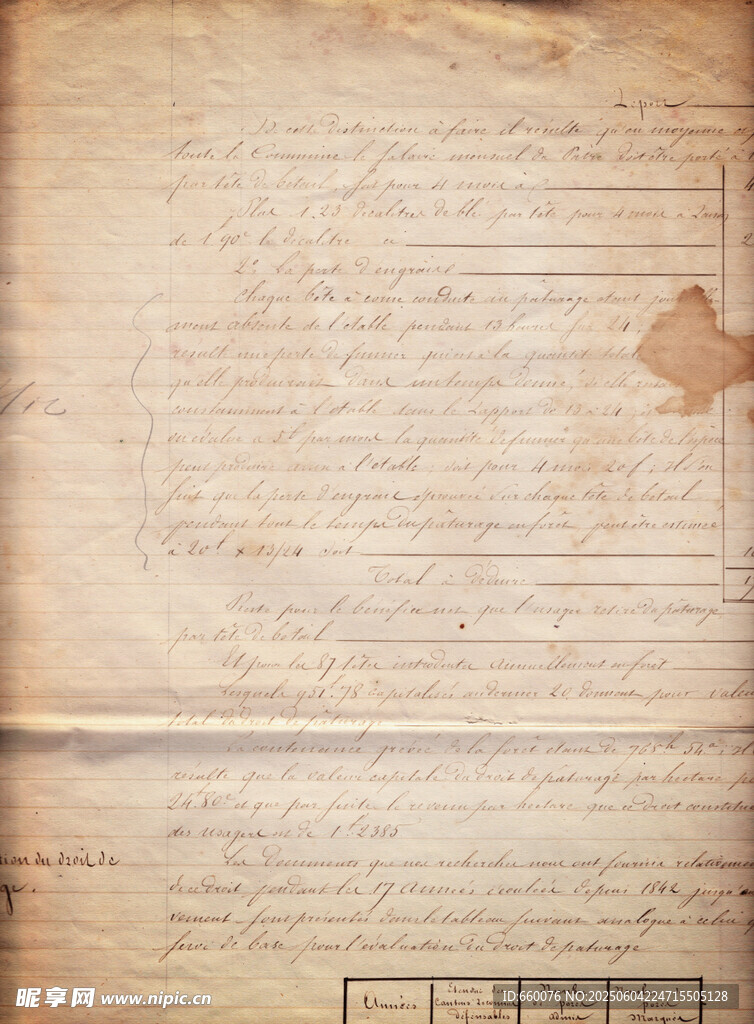 Report
De cette distinction à faire il résulte qu'en moyenne
toute la Commune le salaire mensuel du Pâtre doit être porté à
par tête de betail, soit pour 4 mois à
Plus 1.23 décalitres de blé par tête pour 4 mois à
de 1 90c le décalitre ci
2
2o La perte d'engrais
Chaque bête à corne conduite au pâturage étant
ment absente de l'étable pendant 13 heures sur 24,
résulte une perte de fumier qui est à la quantité totale
qu'elle produirait dans un temps donné, si elle
constamment à l'étable dans le rapport de 13 à 24
on évalue à 5f par mois la quantité de fumier qu'une bête de l'espèce
peut produire à l'étable; soit pour 4 mois 20f; Il s'en
suit que la perte d'engrais éprouvée sur chaque tête de betail
pendant tout le temps du pâturage en forêt peut être estimée
à 20f x 13/24 soit
Total à Déduire
Reste pour le bénéfice net que l'usager retire du pâturage
par tête de betail
Et pour les 87 têtes introduites annuellement en forêt
Lesquels 951f.78 capitalisés au denier 20 donnent pour valeur
total du droit de pâturage
La contenance grévée de la forêt étant de 765h 54a; Il
résulte que la valeur capitale du droit de pâturage par hectare
24f 80c et que par suite le revenu par hectare que ce droit constitue
des usagers est de 1f.2385
tion du droit de
ge.
Les Documents que nos recherches nous ont fournis relativement
de ce droit pendant les 17 années écoulées depuis 1842 jusqu'
vement sont présentés dans le tableau suivant analogue à celui
servi de base pour l'évaluation du droit de pâturage
Années
Etendue des
Cantons
défensables
admis
marqués
昵享网 www.nipic.cn
ID:660076 NO:20250604224715505128